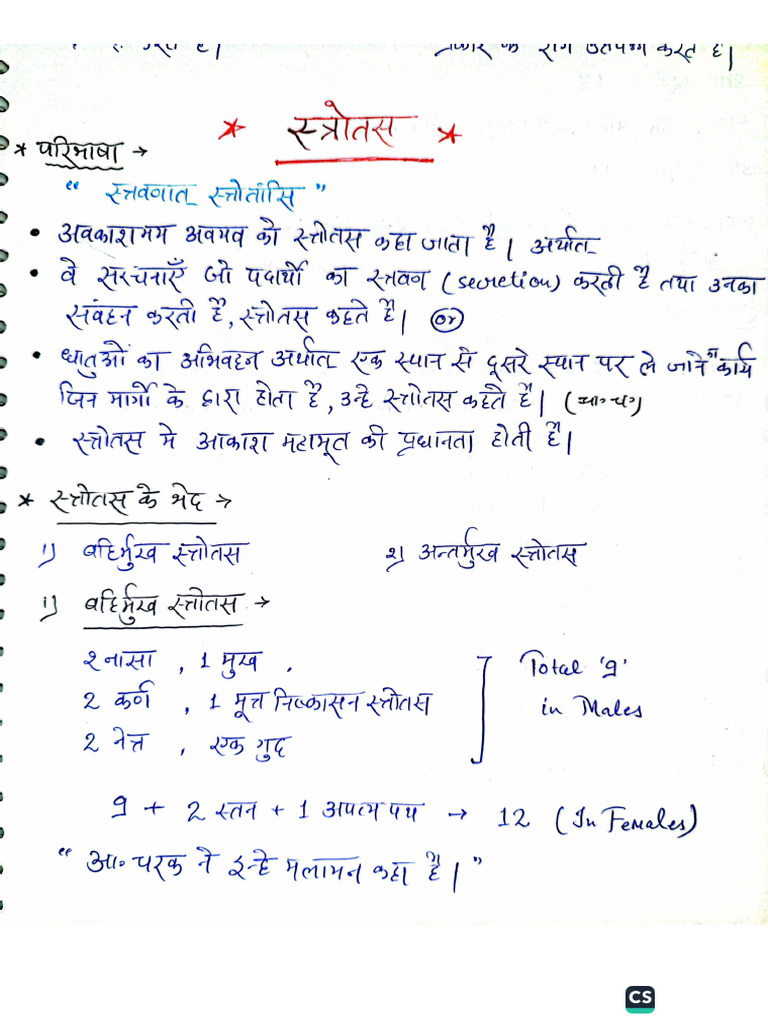 प्रकार के रोग उत्पन्न करते है।
* स्त्रोतस *
* परिभाषा →
“ स्त्रवणात् स्त्रोतांसि ”
• अवकाशमय अवयव को स्त्रोतस कहा जाता है। अर्थात्
• वे संरचनाएँ जो पदार्थो का स्त्रवण (secretion) करती है तथा उनका
संवहन करती है, स्त्रोतस कहते है। (or)
• धातुओं का अभिवहन अर्थात् एक स्थान से दूसरे स्थान पर ले जाने का कार्य
जिन मार्गो के द्वारा होता है, उन्हे स्त्रोतस कहते है। (आ॰ च॰)
• स्त्रोतस मे आकाश महाभूत की प्रधानता होती है।
* स्त्रोतस के भेद →
1) बहिर्मुख स्त्रोतस 2) अन्तर्मुख स्त्रोतस
1) बहिर्मुख स्त्रोतस →
2 नासा , 1 मुख ,
2 कर्ण , 1 मूत्र निष्कासन स्त्रोतस
2 नेत्र , एक गुद
Total '9'
in Males
9 + 2 स्तन + 1 अपत्य पथ → 12 (In Females)
“ आ॰ चरक ने इन्हे मलायन कहा है। ”
CS